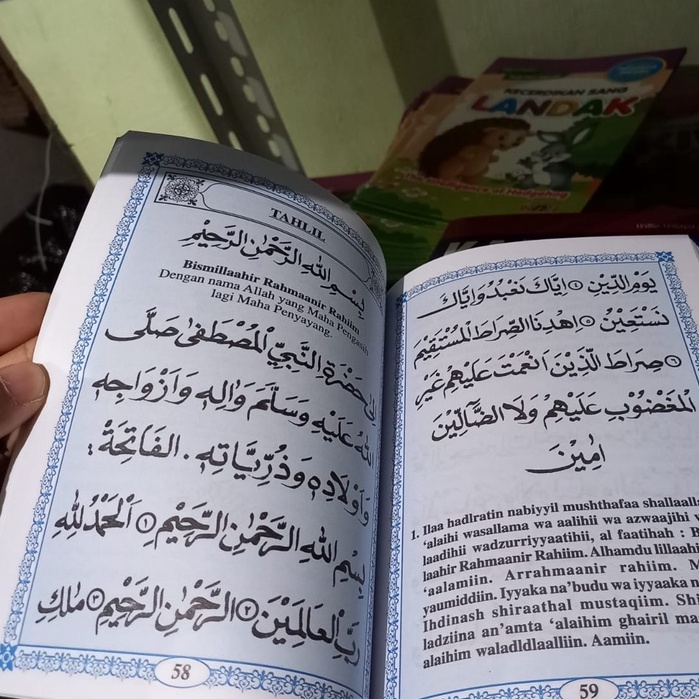 KECERDIKAN SANG
LANDAK
TAHLIL
بِسْمِ اللهِ الرَّحْمٰنِ الرَّحِيْمِ
Bismillaahir Rahmaanir Rahiim
Dengan nama Allah yang Maha Pengasih
lagi Maha Penyayang.
اِلٰى حَضْرَةِ النَّبِيِّ الْمُصْطَفٰى صَلَّى
اللهُ عَلَيْهِ وَسَلَّمَ وَاٰلِهٖ وَاَزْوَاجِهٖ
وَاَوْلَادِهٖ وَذُرِّيَّاتِهٖ . الفَاتِحَةْ :
بِسْمِ اللهِ الرَّحْمٰنِ الرَّحِيْمِ ۝١ اَلْحَمْدُ لِلّٰهِ
رَبِّ الْعَالَمِيْنَ ۝٢ الرَّحْمٰنِ الرَّحِيْمِ ۝٣ مٰلِكِ
58
يَوْمِ الدِّيْنِ ۝٤ اِيَّاكَ نَعْبُدُ وَاِيَّاكَ
نَسْتَعِيْنُ ۝٥ اِهْدِنَا الصِّرَاطَ الْمُسْتَقِيْمَ
۝٦ صِرَاطَ الَّذِيْنَ اَنْعَمْتَ عَلَيْهِمْ غَيْرِ
الْمَغْضُوْبِ عَلَيْهِمْ وَلَا الضَّآلِّيْنَ
اٰمِيْنَ
1. Ilaa hadlratin nabiyyil mushthafaa shallalla
'alaihi wasallama wa aalihii wa azwaajihi
laadihii wadzurriyyaatihii, al faatihah : B
laahir Rahmaanir Rahiim. Alhamdu lillaah
'aalamiin. Arrahmaanir rahiim. M
yaumiddiin. Iyyaka na'budu wa iyyaaka n
Ihdinash shiraathal mustaqiim. Shi
ladziina an'amta 'alaihim ghairil ma
alaihim waladldlaalliin. Aamiin.
59